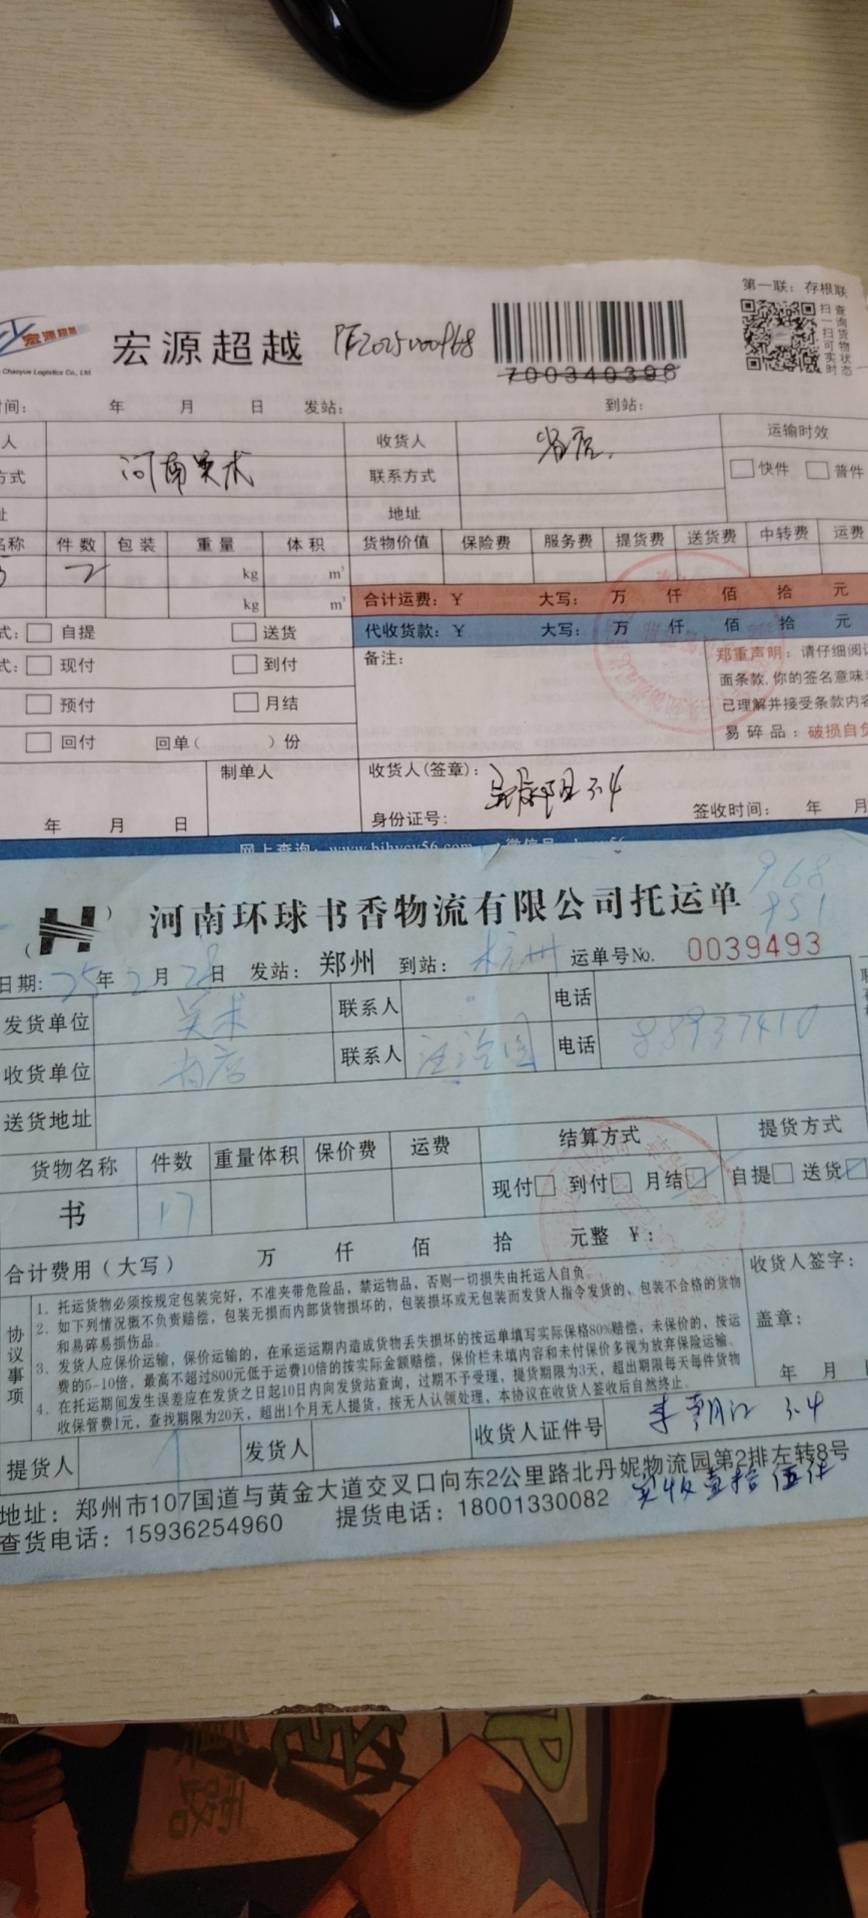 第一联：存根联
宏源超越
宏源超越 PF2025000968
Chaoyue Logistics Co., Ltd.
700340396
扫一扫可实时
查询货物状态
间： 年 月 日 发站： 到站：
人 收货人 省店 运输时效
方式 河南美术 联系方式 快件 普件
址 地址
名称 件数 包装 重量 体积 货物价值 保险费 服务费 提货费 送货费 中转费 运费
2 kg m³
kg m³ 合计运费：￥ 大写： 万 仟 佰 拾 元
式： 自提 送货 代收货款：￥ 大写： 万 仟 佰 拾 元
式： 现付 到付 备注： 郑重声明：请仔细阅读
面条款,你的签名意味着
预付 月结 已理解并接受条款内容
回付 回单（ ）份 易碎品：破损自负
制单人 收货人(签章)： 3.4
年 月 日 身份证号： 签收时间： 年 月
968
951
河南环球书香物流有限公司托运单
日期: 25年2月28日 发站：郑州 到站：杭州 运单号No. 0039493
发货单位 美术 联系人 电话
收货单位 省店 联系人 电话 88937410
送货地址
货物名称 件数 重量体积 保价费 运费 结算方式 提货方式
书 17 现付 到付 月结 自提 送货
合计费用（大写） 万 仟 佰 拾 元整 ￥：
协议事项
1. 托运货物必须按规定包装完好，不准夹带危险品，禁运物品，否则一切损失由托运人自负。
2. 如下列情况概不负责赔偿，包装无损而内部货物损坏的，包装损坏或无包装而发货人指令发货的、包装不合格的货物
和易碎易损伤品。
3. 发货人应保价运输，保价运输的，在承运运期内造成货物丢失损坏的按运单填写实际保格80%赔偿，未保价的，按运
费的5-10倍，最高不超过800元低于运费10倍的按实际金额赔偿，保价栏未填内容和未付保价多视为放弃保险运输。
4. 在托运期间发生误差应在发货之日起10日内向发货站查询，过期不予受理，提货期限为3天，超出期限每天每件货物
收保管费1元，查找期限为20天，超出1个月无人提货，按无人认领处理，本协议在收货人签收后自然终止。
收货人签字：
盖章：
年 月
提货人 发货人 收货人证件号 李朝江 3.4
地址：郑州市107国道与黄金大道交叉口向东2公里路北丹妮物流园第2排左转8号
查货电话：15936254960 提货电话：18001330082 实收壹拾伍件